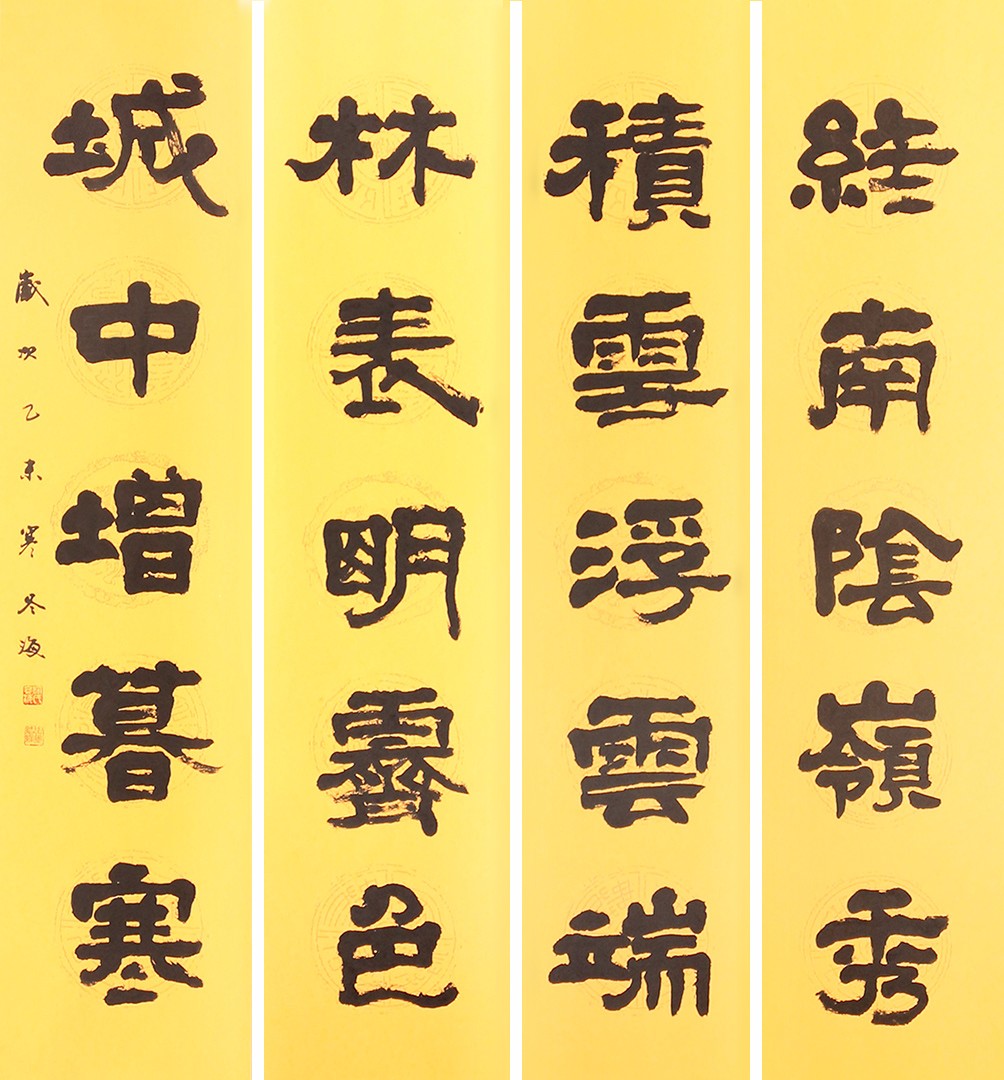 終南陰嶺秀
積雪浮雲端
林表明霽色
城中增暮寒
歲次乙未寒冬海